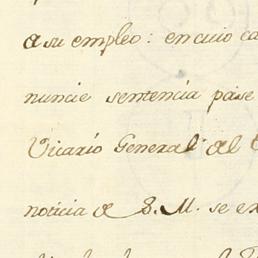 a su empleo: en cuio ca
nuncie sentencia pase
Vicario General al
noticia de S. M. se ex